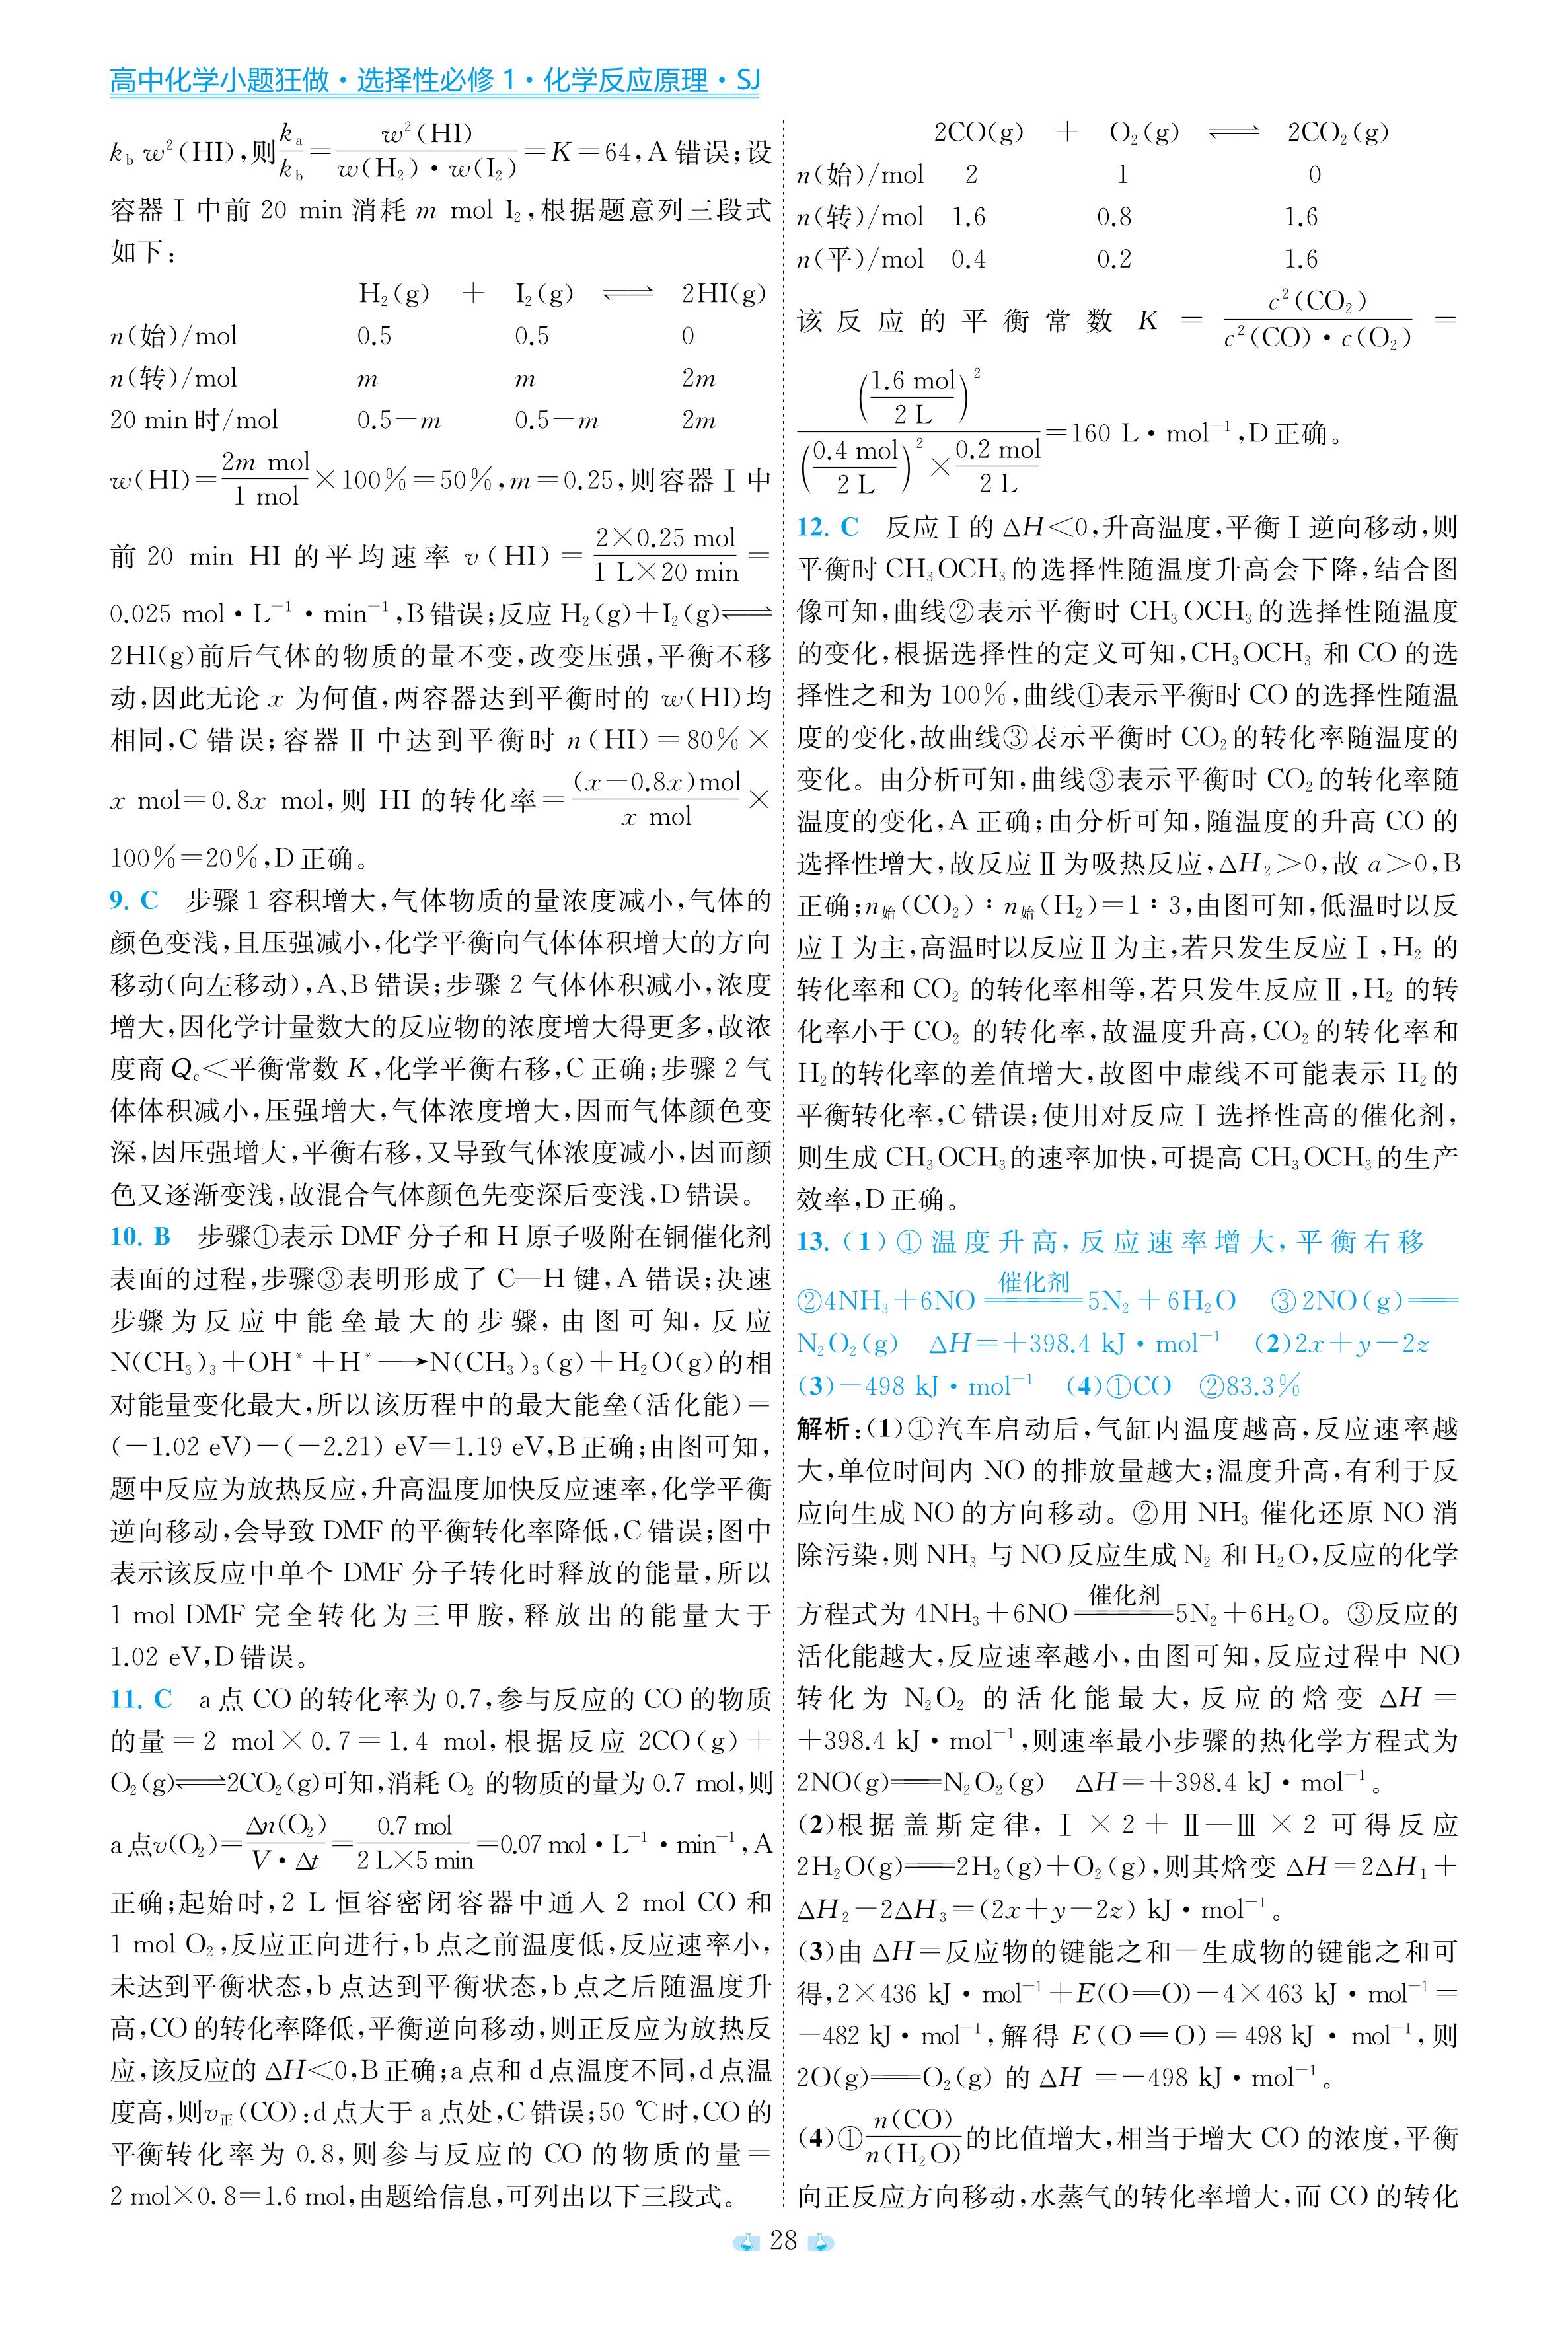 高中化学小题狂做·选择性必修 1·化学反应原理·SJ
k_b w²(HI),则k_a/k_b=w²(HI)/[w(H₂)·w(I₂)]=K=64,A 错误;设
容器Ⅰ中前 20 min 消耗 m mol I₂,根据题意列三段式
如下:
H₂(g) + I₂(g) ⇌ 2HI(g)
n(始)/mol 0.5 0.5 0
n(转)/mol m m 2m
20 min时/mol 0.5-m 0.5-m 2m
w(HI)=(2m mol)/(1 mol)×100%=50%,m=0.25,则容器Ⅰ中
前 20 min HI 的平均速率 v(HI)=(2×0.25 mol)/(1 L×20 min)=
0.025 mol·L⁻¹·min⁻¹,B错误;反应 H₂(g)+I₂(g)⇌
2HI(g)前后气体的物质的量不变,改变压强,平衡不移
动,因此无论 x 为何值,两容器达到平衡时的 w(HI)均
相同,C 错误;容器Ⅱ中达到平衡时 n(HI)=80%×
x mol=0.8x mol,则 HI 的转化率=((x-0.8x)mol)/(x mol)×
100%=20%,D正确。
9. C 步骤 1 容积增大,气体物质的量浓度减小,气体的
颜色变浅,且压强减小,化学平衡向气体体积增大的方向
移动(向左移动),A、B错误;步骤 2 气体体积减小,浓度
增大,因化学计量数大的反应物的浓度增大得更多,故浓
度商 Q_c<平衡常数 K,化学平衡右移,C 正确;步骤 2 气
体体积减小,压强增大,气体浓度增大,因而气体颜色变
深,因压强增大,平衡右移,又导致气体浓度减小,因而颜
色又逐渐变浅,故混合气体颜色先变深后变浅,D错误。
10. B 步骤①表示 DMF 分子和 H 原子吸附在铜催化剂
表面的过程,步骤③表明形成了 C—H 键,A 错误;决速
步骤为反应中能垒最大的步骤,由图可知,反应
N(CH₃)₃+OH*+H*⟶N(CH₃)₃(g)+H₂O(g)的相
对能量变化最大,所以该历程中的最大能垒(活化能)=
(-1.02 eV)-(-2.21) eV=1.19 eV,B正确;由图可知,
题中反应为放热反应,升高温度加快反应速率,化学平衡
逆向移动,会导致 DMF 的平衡转化率降低,C 错误;图中
表示该反应中单个 DMF 分子转化时释放的能量,所以
1 mol DMF 完全转化为三甲胺,释放出的能量大于
1.02 eV,D错误。
11. C a 点 CO 的转化率为 0.7,参与反应的 CO 的物质
的量=2 mol×0.7=1.4 mol,根据反应 2CO(g)+
O₂(g)⇌2CO₂(g)可知,消耗 O₂ 的物质的量为 0.7 mol,则
a点v(O₂)=Δn(O₂)/(V·Δt)=(0.7 mol)/(2 L×5 min)=0.07 mol·L⁻¹·min⁻¹,A
正确;起始时,2 L 恒容密闭容器中通入 2 mol CO 和
1 mol O₂,反应正向进行,b 点之前温度低,反应速率小,
未达到平衡状态,b 点达到平衡状态,b 点之后随温度升
高,CO的转化率降低,平衡逆向移动,则正反应为放热反
应,该反应的 ΔH<0,B正确;a点和 d点温度不同,d点温
度高,则v正(CO):d点大于 a 点处,C错误;50 ℃时,CO的
平衡转化率为 0.8,则参与反应的 CO 的物质的量=
2 mol×0.8=1.6 mol,由题给信息,可列出以下三段式。
2CO(g) + O₂(g) ⇌ 2CO₂(g)
n(始)/mol 2 1 0
n(转)/mol 1.6 0.8 1.6
n(平)/mol 0.4 0.2 1.6
该反应的平衡常数 K=c²(CO₂)/[c²(CO)·c(O₂)]=
(1.6 mol/2 L)²/[(0.4 mol/2 L)²×0.2 mol/2 L]=160 L·mol⁻¹,D正确。
12. C 反应Ⅰ的 ΔH<0,升高温度,平衡Ⅰ逆向移动,则
平衡时 CH₃OCH₃的选择性随温度升高会下降,结合图
像可知,曲线②表示平衡时 CH₃OCH₃的选择性随温度
的变化,根据选择性的定义可知,CH₃OCH₃ 和 CO 的选
择性之和为 100%,曲线①表示平衡时 CO 的选择性随温
度的变化,故曲线③表示平衡时 CO₂的转化率随温度的
变化。由分析可知,曲线③表示平衡时 CO₂的转化率随
温度的变化,A 正确;由分析可知,随温度的升高 CO 的
选择性增大,故反应Ⅱ为吸热反应,ΔH₂>0,故 a>0,B
正确;n始(CO₂)∶n始(H₂)=1∶3,由图可知,低温时以反
应Ⅰ为主,高温时以反应Ⅱ为主,若只发生反应Ⅰ,H₂ 的
转化率和 CO₂ 的转化率相等,若只发生反应Ⅱ,H₂ 的转
化率小于 CO₂ 的转化率,故温度升高,CO₂的转化率和
H₂的转化率的差值增大,故图中虚线不可能表示 H₂的
平衡转化率,C错误;使用对反应Ⅰ选择性高的催化剂,
则生成 CH₃OCH₃的速率加快,可提高 CH₃OCH₃的生产
效率,D正确。
13. (1)①温度升高,反应速率增大,平衡右移
②4NH₃+6NO 催化剂═══ 5N₂+6H₂O ③2NO(g)══
N₂O₂(g) ΔH=+398.4 kJ·mol⁻¹ (2)2x+y-2z
(3)-498 kJ·mol⁻¹ (4)①CO ②83.3%
解析:(1)①汽车启动后,气缸内温度越高,反应速率越
大,单位时间内 NO 的排放量越大;温度升高,有利于反
应向生成 NO 的方向移动。②用 NH₃ 催化还原 NO 消
除污染,则 NH₃ 与 NO 反应生成 N₂ 和 H₂O,反应的化学
方程式为 4NH₃+6NO 催化剂═══ 5N₂+6H₂O。③反应的
活化能越大,反应速率越小,由图可知,反应过程中 NO
转化为 N₂O₂ 的活化能最大,反应的焓变 ΔH=
+398.4 kJ·mol⁻¹,则速率最小步骤的热化学方程式为
2NO(g)══N₂O₂(g) ΔH=+398.4 kJ·mol⁻¹。
(2)根据盖斯定律,Ⅰ×2+Ⅱ—Ⅲ×2 可得反应
2H₂O(g)══2H₂(g)+O₂(g),则其焓变 ΔH=2ΔH₁+
ΔH₂-2ΔH₃=(2x+y-2z) kJ·mol⁻¹。
(3)由 ΔH=反应物的键能之和-生成物的键能之和可
得,2×436 kJ·mol⁻¹+E(O═O)-4×463 kJ·mol⁻¹=
-482 kJ·mol⁻¹,解得 E(O═O)=498 kJ·mol⁻¹,则
2O(g)══O₂(g) 的 ΔH =-498 kJ·mol⁻¹。
(4)①n(CO)/n(H₂O)的比值增大,相当于增大 CO 的浓度,平衡
向正反应方向移动,水蒸气的转化率增大,而 CO 的转化
28